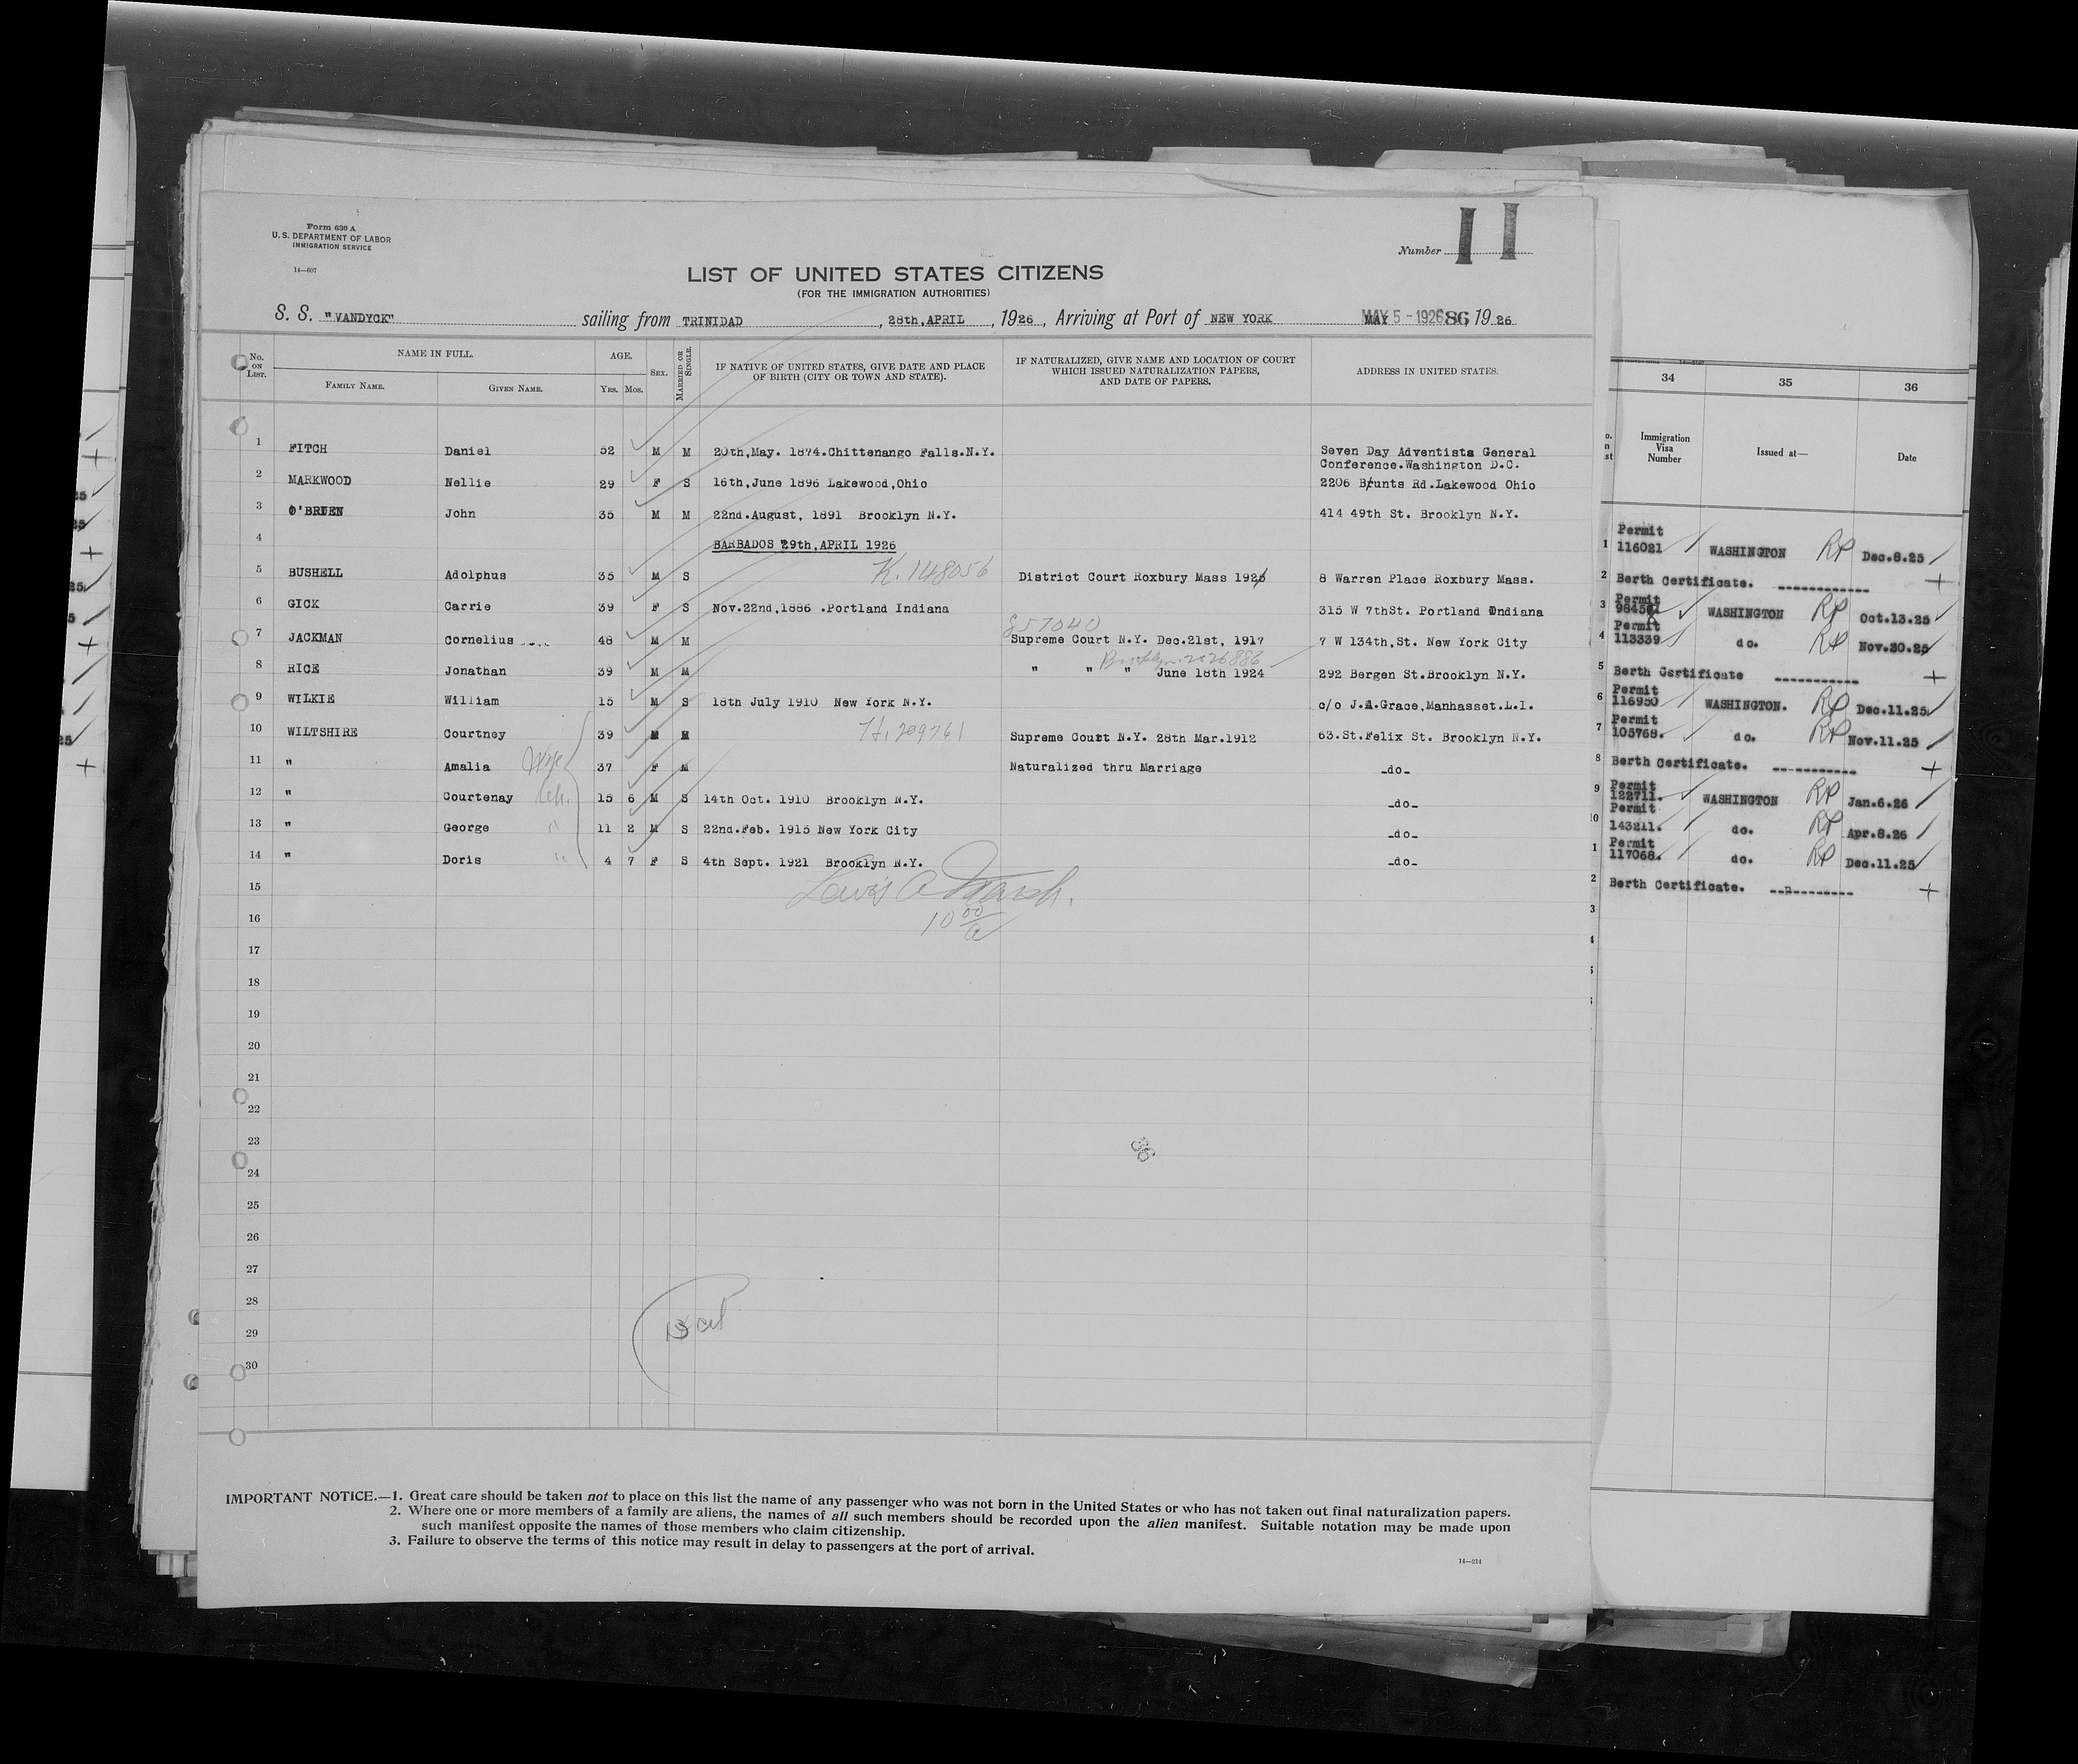 Form 630 A
U. S. DEPARTMENT OF LABOR
IMMIGRATION SERVICE
14—607
Number 11
LIST OF UNITED STATES CITIZENS
(FOR THE IMMIGRATION AUTHORITIES)
S. S. "VANDYCK" sailing from TRINIDAD, 28th,APRIL, 1926, Arriving at Port of NEW YORK MAY 5 - 1926 86, 19 26
No. ON LIST. NAME IN FULL. AGE. SEX. MARRIED OR SINGLE. IF NATIVE OF UNITED STATES, GIVE DATE AND PLACE OF BIRTH (CITY OR TOWN AND STATE). IF NATURALIZED, GIVE NAME AND LOCATION OF COURT WHICH ISSUED NATURALIZATION PAPERS, AND DATE OF PAPERS. ADDRESS IN UNITED STATES.
FAMILY NAME. GIVEN NAME. YRS. MOS.
1 FITCH Daniel 52 M M 20th,May. 1874.Chittenango Falls.N.Y. Seven Day Adventists General
Conference.Washington D.C.
2 MARKWOOD Nellie 29 F S 16th,June 1896 Lakewood,Ohio 2206 Brunts Rd.Lakewood Ohio
3 O'BRIEN John 35 M M 22nd.August, 1891 Brooklyn N.Y. 414 49th St. Brooklyn N.Y.
4 BARBADOS 29th,APRIL 1926
K.148056
5 BUSHELL Adolphus 35 M S District Court Roxbury Mass 1925 8 Warren Place Roxbury Mass.
6 GICK Carrie 39 F S Nov.22nd,1886 .Portland Indiana 315 W 7thSt. Portland Indiana
857040
7 JACKMAN Cornelius 48 M M Supreme Court N.Y. Dec.21st, 1917 7 W 134th,St. New York City
Brooklyn.2026886
8 RICE Jonathan 39 M M " " " June 18th 1924 292 Bergen St.Brooklyn N.Y.
9 WILKIE William 15 M S 18th July 1910 New York N.Y. c/o J.A.Grace,Manhasset.L.I.
H.209761
10 WILTSHIRE Courtney 39 M M Supreme Court N.Y. 28th Mar.1912 63.St.Felix St. Brooklyn N.Y.
11 " Amalia Wife 37 F M Naturalized thru Marriage -do-
12 " Courtenay Ch. 15 6 M S 14th Oct. 1910 Brooklyn N.Y. -do-
13 " George " 11 2 M S 22nd.Feb. 1915 New York City -do-
14 " Doris " 4 7 F S 4th Sept. 1921 Brooklyn N.Y. -do-
15
Lewis A Marsh.
16
10 00
17
18
19
20
21
22
23
24
25
26
27
28
29
30
IMPORTANT NOTICE.—1. Great care should be taken not to place on this list the name of any passenger who was not born in the United States or who has not taken out final naturalization papers.
2. Where one or more members of a family are aliens, the names of all such members should be recorded upon the alien manifest. Suitable notation may be made upon
such manifest opposite the names of those members who claim citizenship.
3. Failure to observe the terms of this notice may result in delay to passengers at the port of arrival.
14—214
34 35 36
Immigration Visa Number Issued at— Date
Permit
1 116021 WASHINGTON RP Dec.8.25
2 Berth Certificate. ------------ +
Permit
3 WASHINGTON RP Oct.13.25
Permit
4 113339 do. RP Nov.30.25
5 Berth Certificate ----------- +
Permit
6 116950 WASHINGTON. RP Dec.11.25
Permit
7 105768. do. RP Nov.11.25
8 Berth Certificate. ----------- +
Permit
9 122711. WASHINGTON RP Jan.6.26
Permit
0 143211. do. RP Apr.8.26
Permit
1 117068. do. RP Dec.11.25
2 Berth Certificate. ----------- +
3
4
5